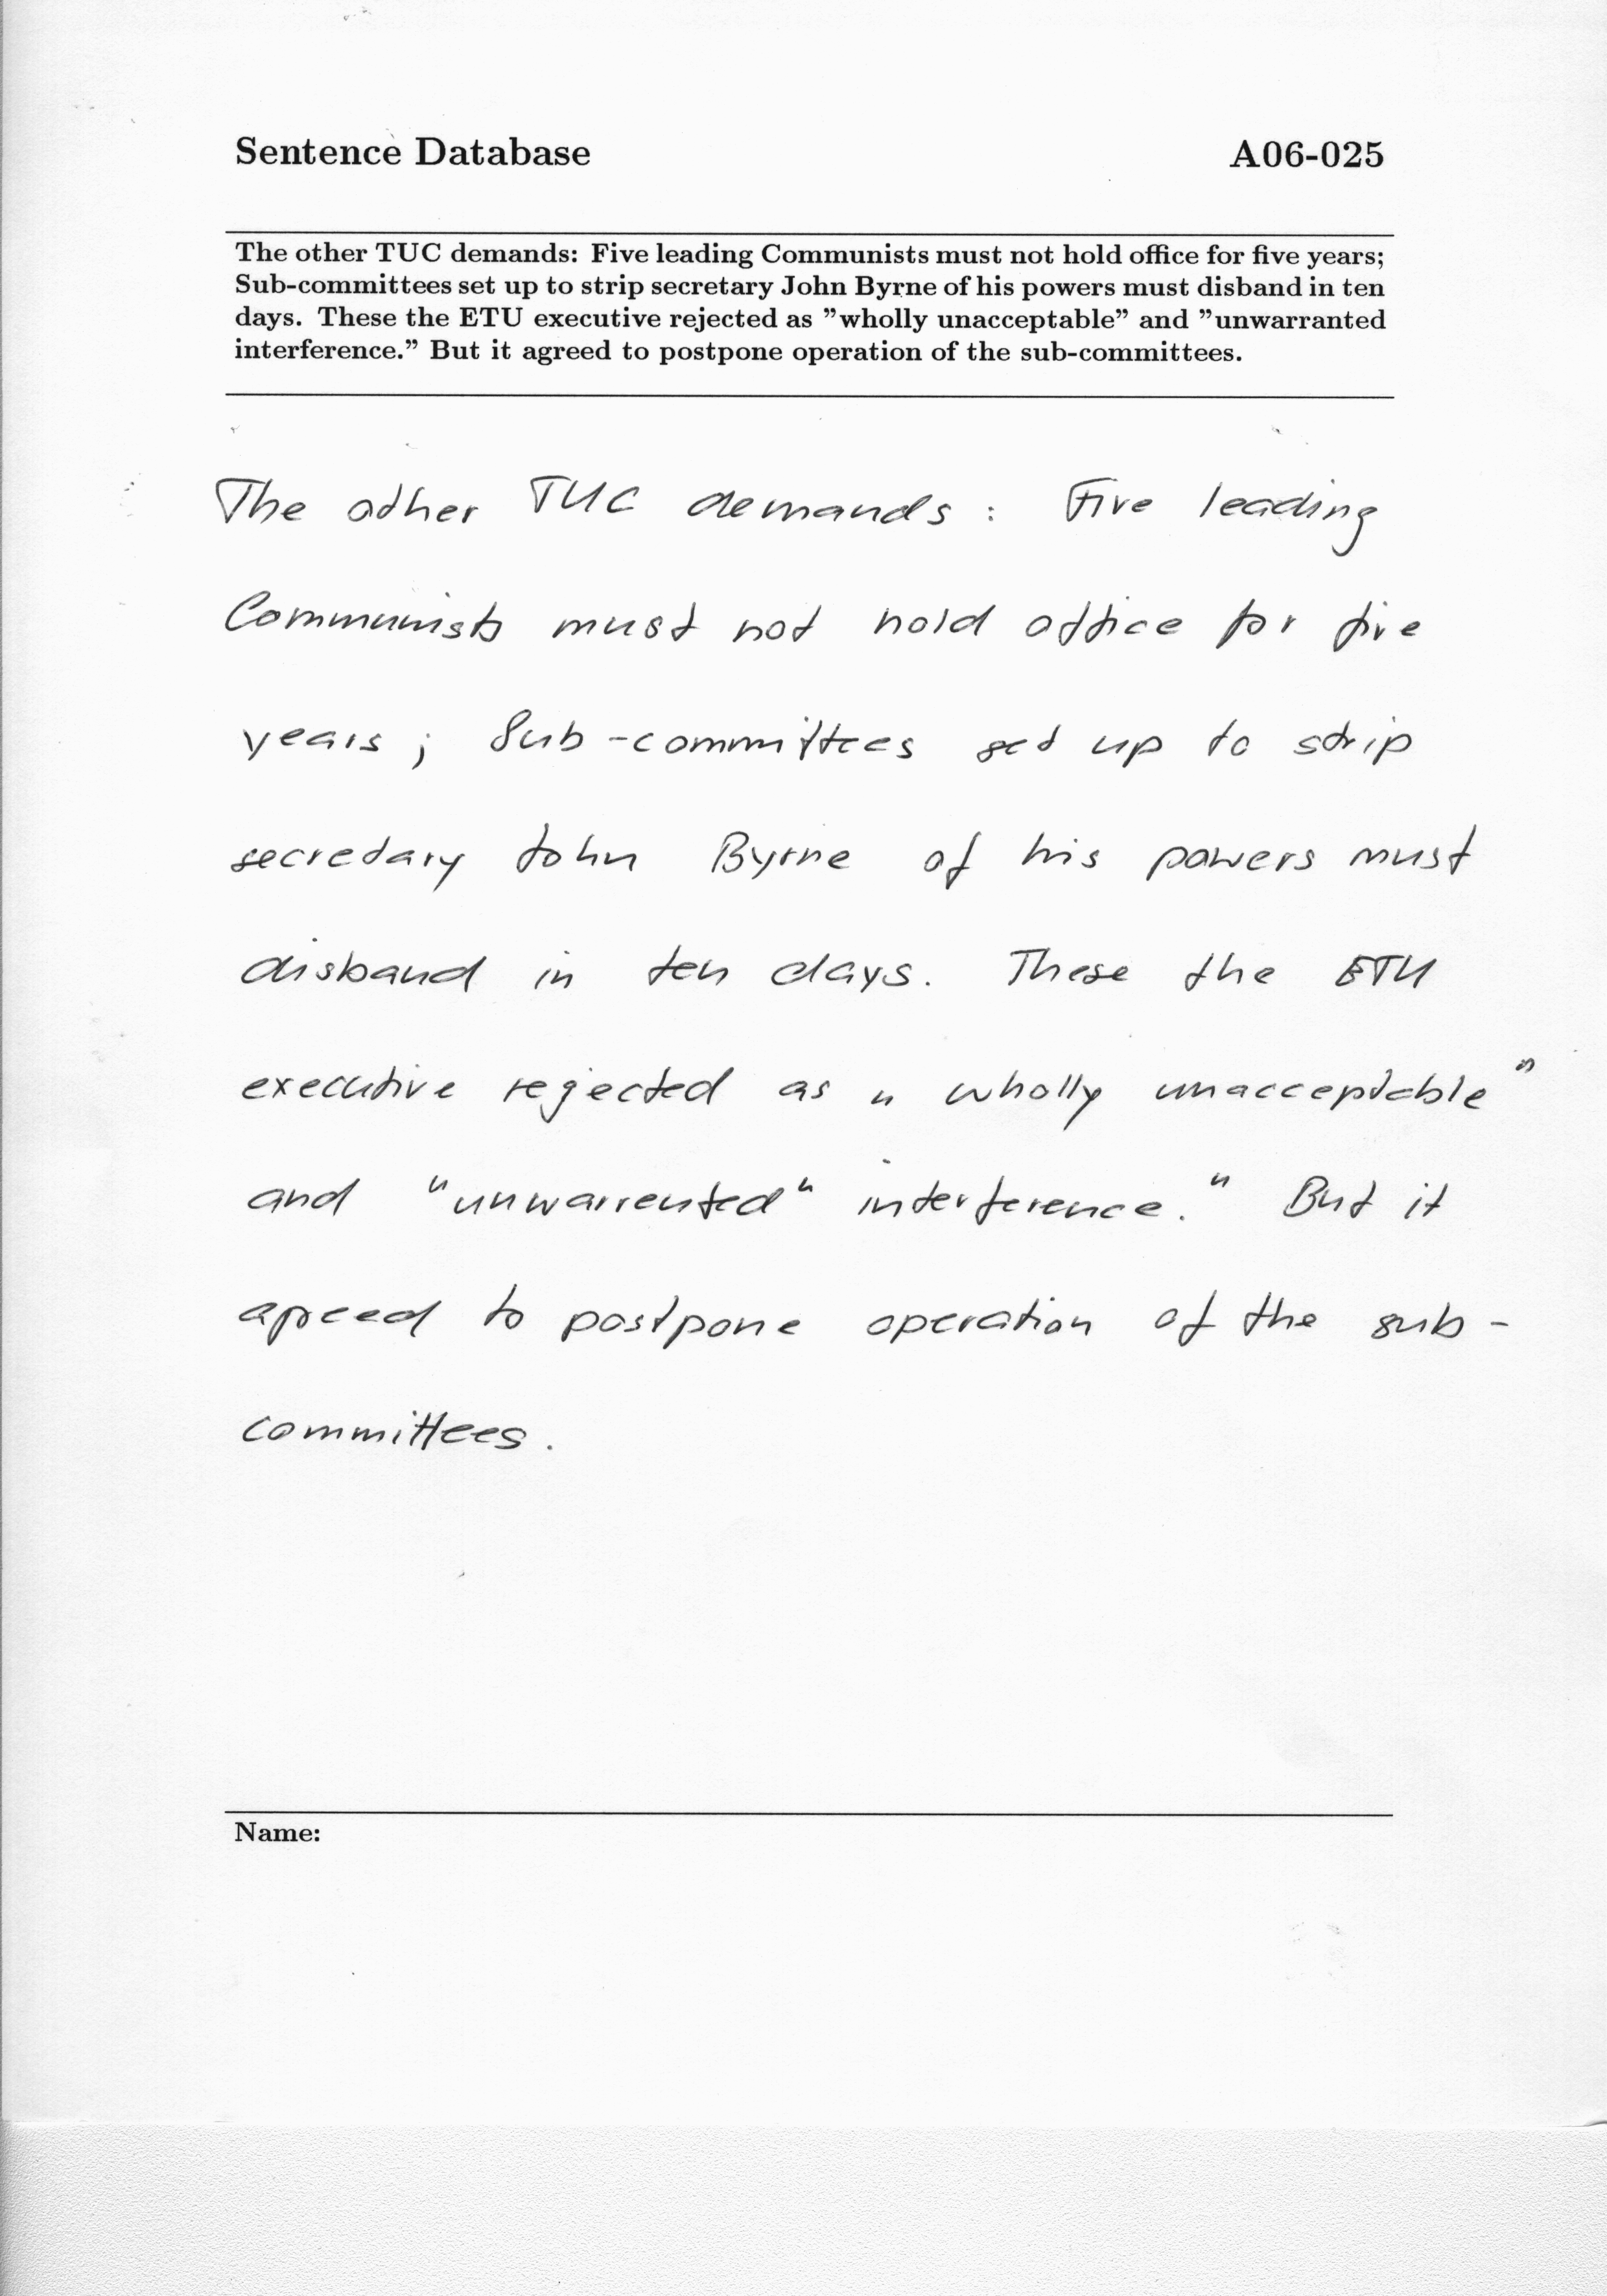 Sentence Database A06-025
The other TUC demands: Five leading Communists must not hold office for five years;
Sub-committees set up to strip secretary John Byrne of his powers must disband in ten
days. These the ETU executive rejected as ”wholly unacceptable” and ”unwarranted
interference.” But it agreed to postpone operation of the sub-committees.
The other TUC demands : Five leading
Communists must not hold office for five
years ; Sub-committees set up to strip
secretary John Byrne of his powers must
disband in ten days. These the ETU
executive rejected as " wholly unacceptable"
and "unwarrented" interference." But it
agreed to postpone operation of the sub-
committees.
Name: